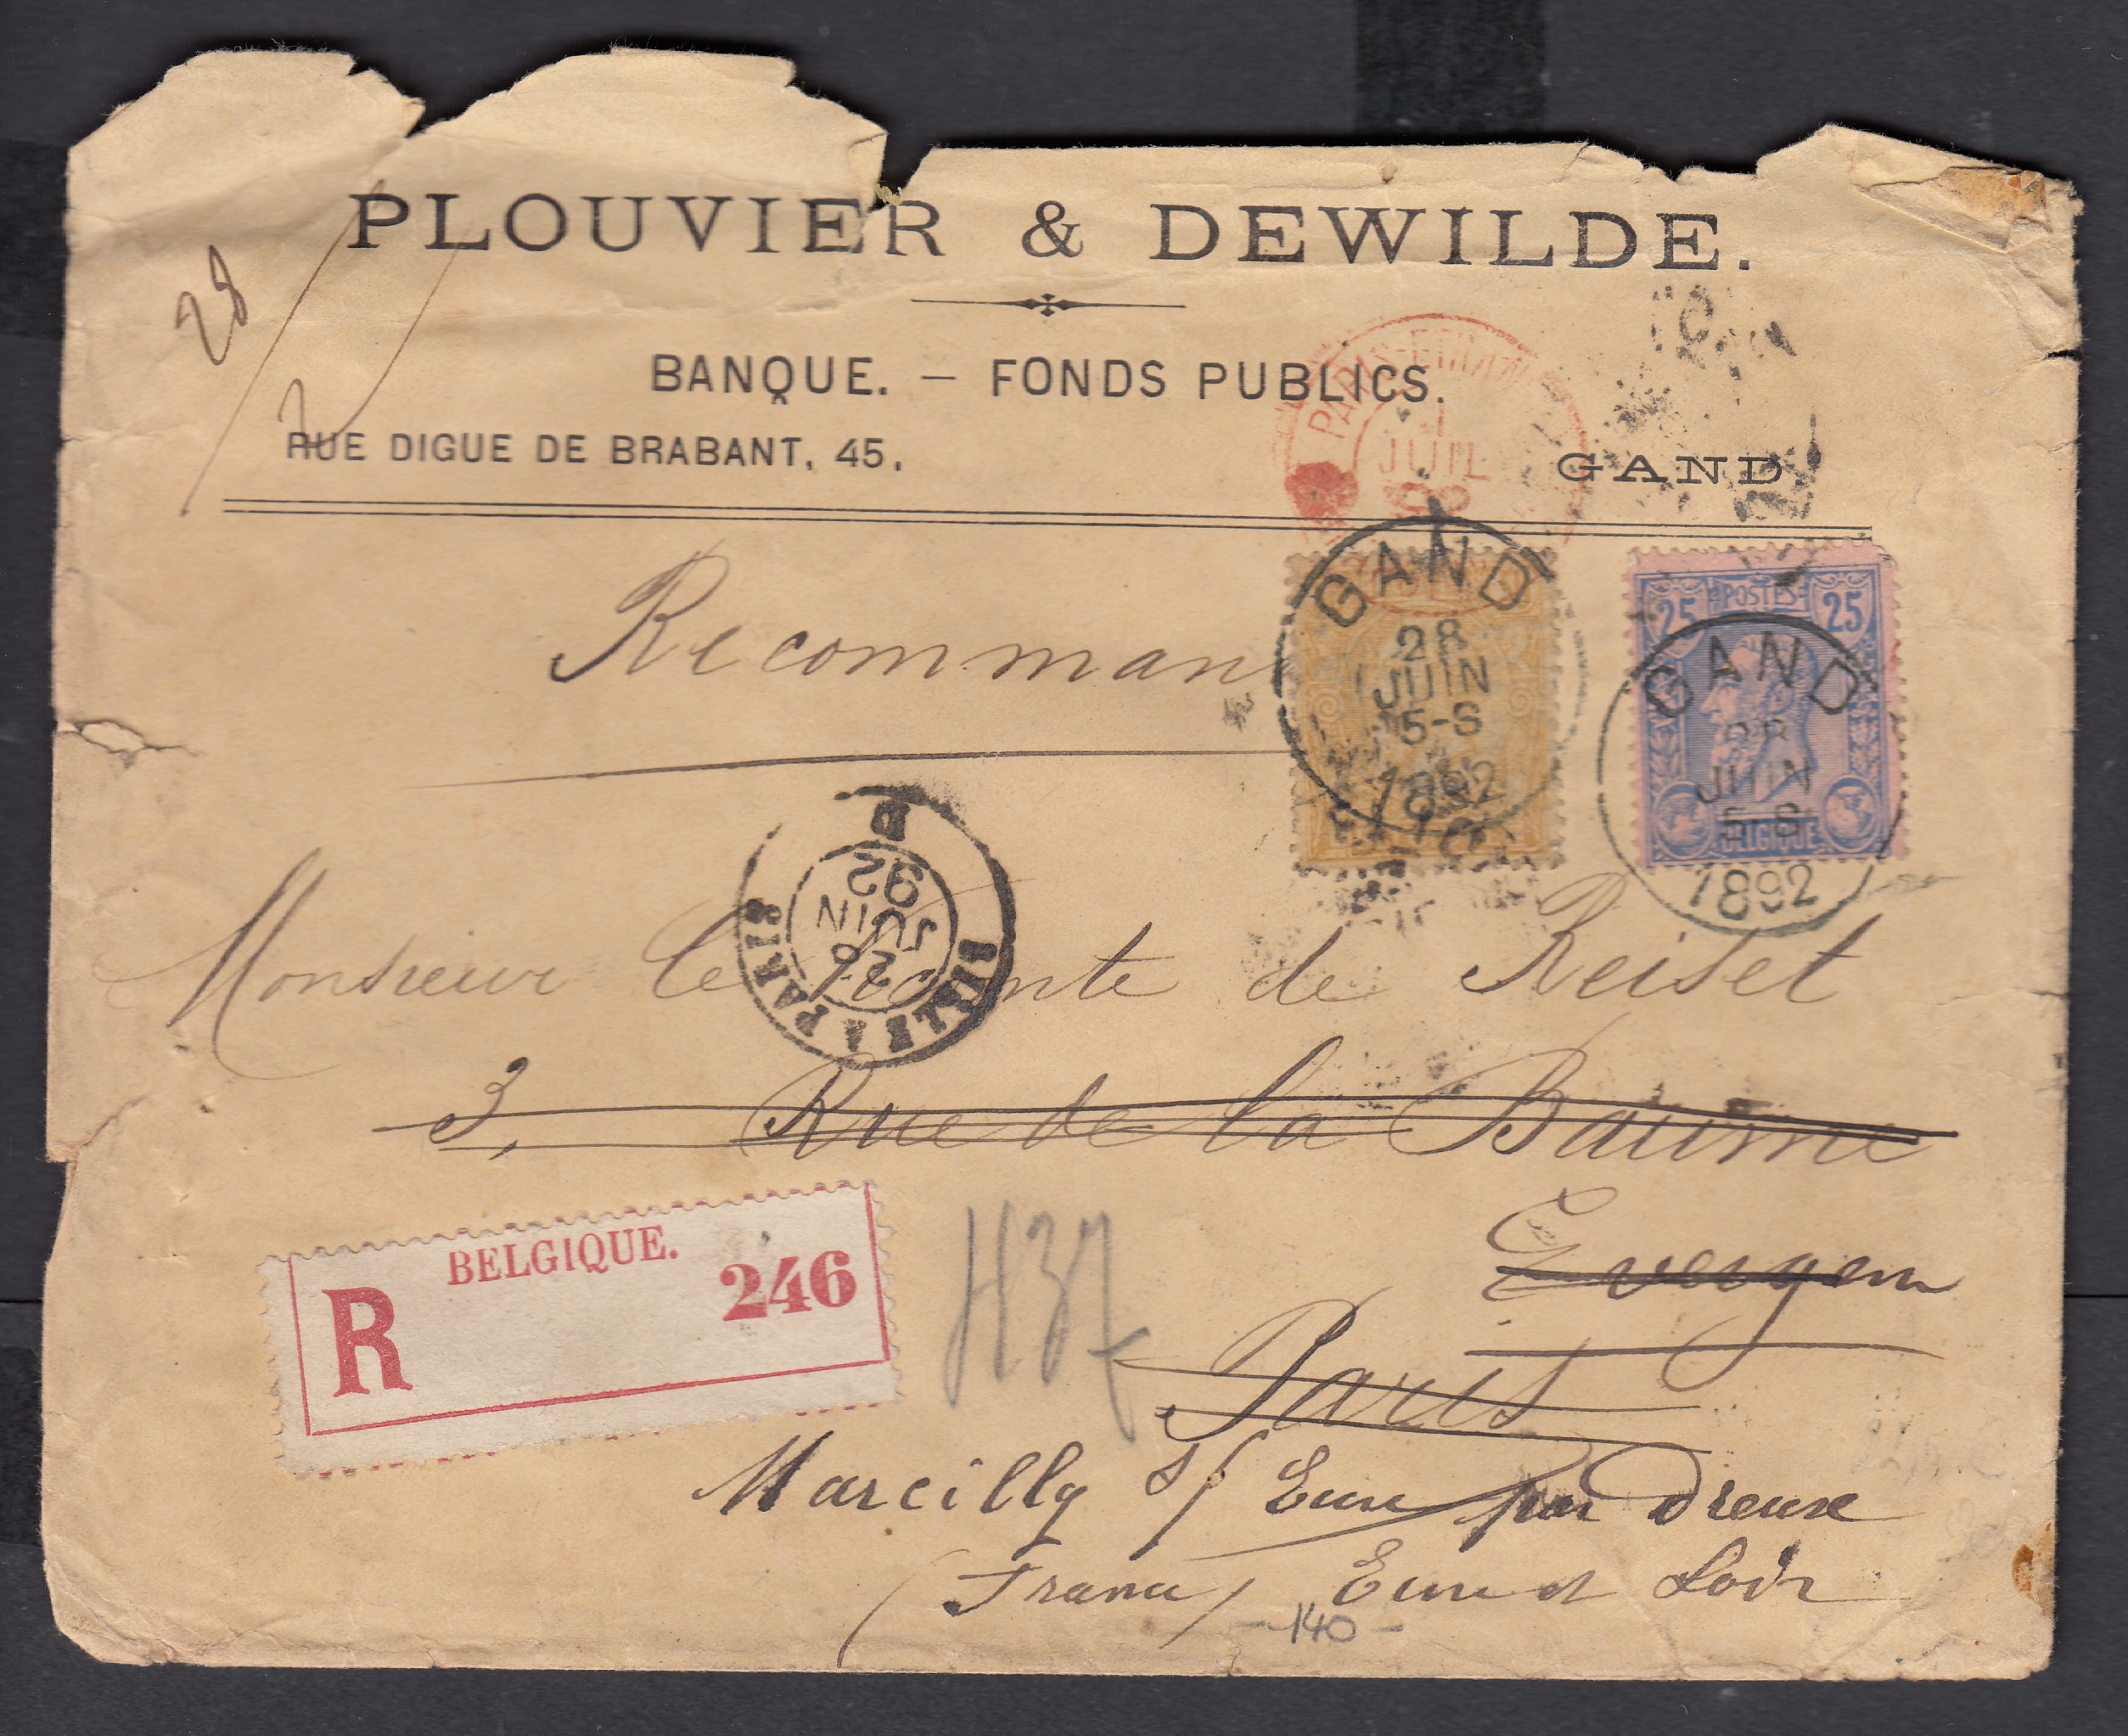 PLOUVIER & DEWILDE.
28
7
BANQUE. – FONDS PUBLICS.
RUE DIGUE DE BRABANT, 45.
GAND.
PARIS-ETRANGER
1
JUIL
92
Recomman
GAND
28
JUIN
5-S
1892
25 POSTES 25
BELGIQUE
GAND
28
JUIN
5-S
1892
LILLE A PARIS
28
JUIN
92
B
Monsieur le Vicomte de Reiset
3, Rue de la Baume
Evergem
Paris
BELGIQUE.
R
246
H37
Marcilly s/ Eure par Dreux
(France) Eure et Loir
-140-